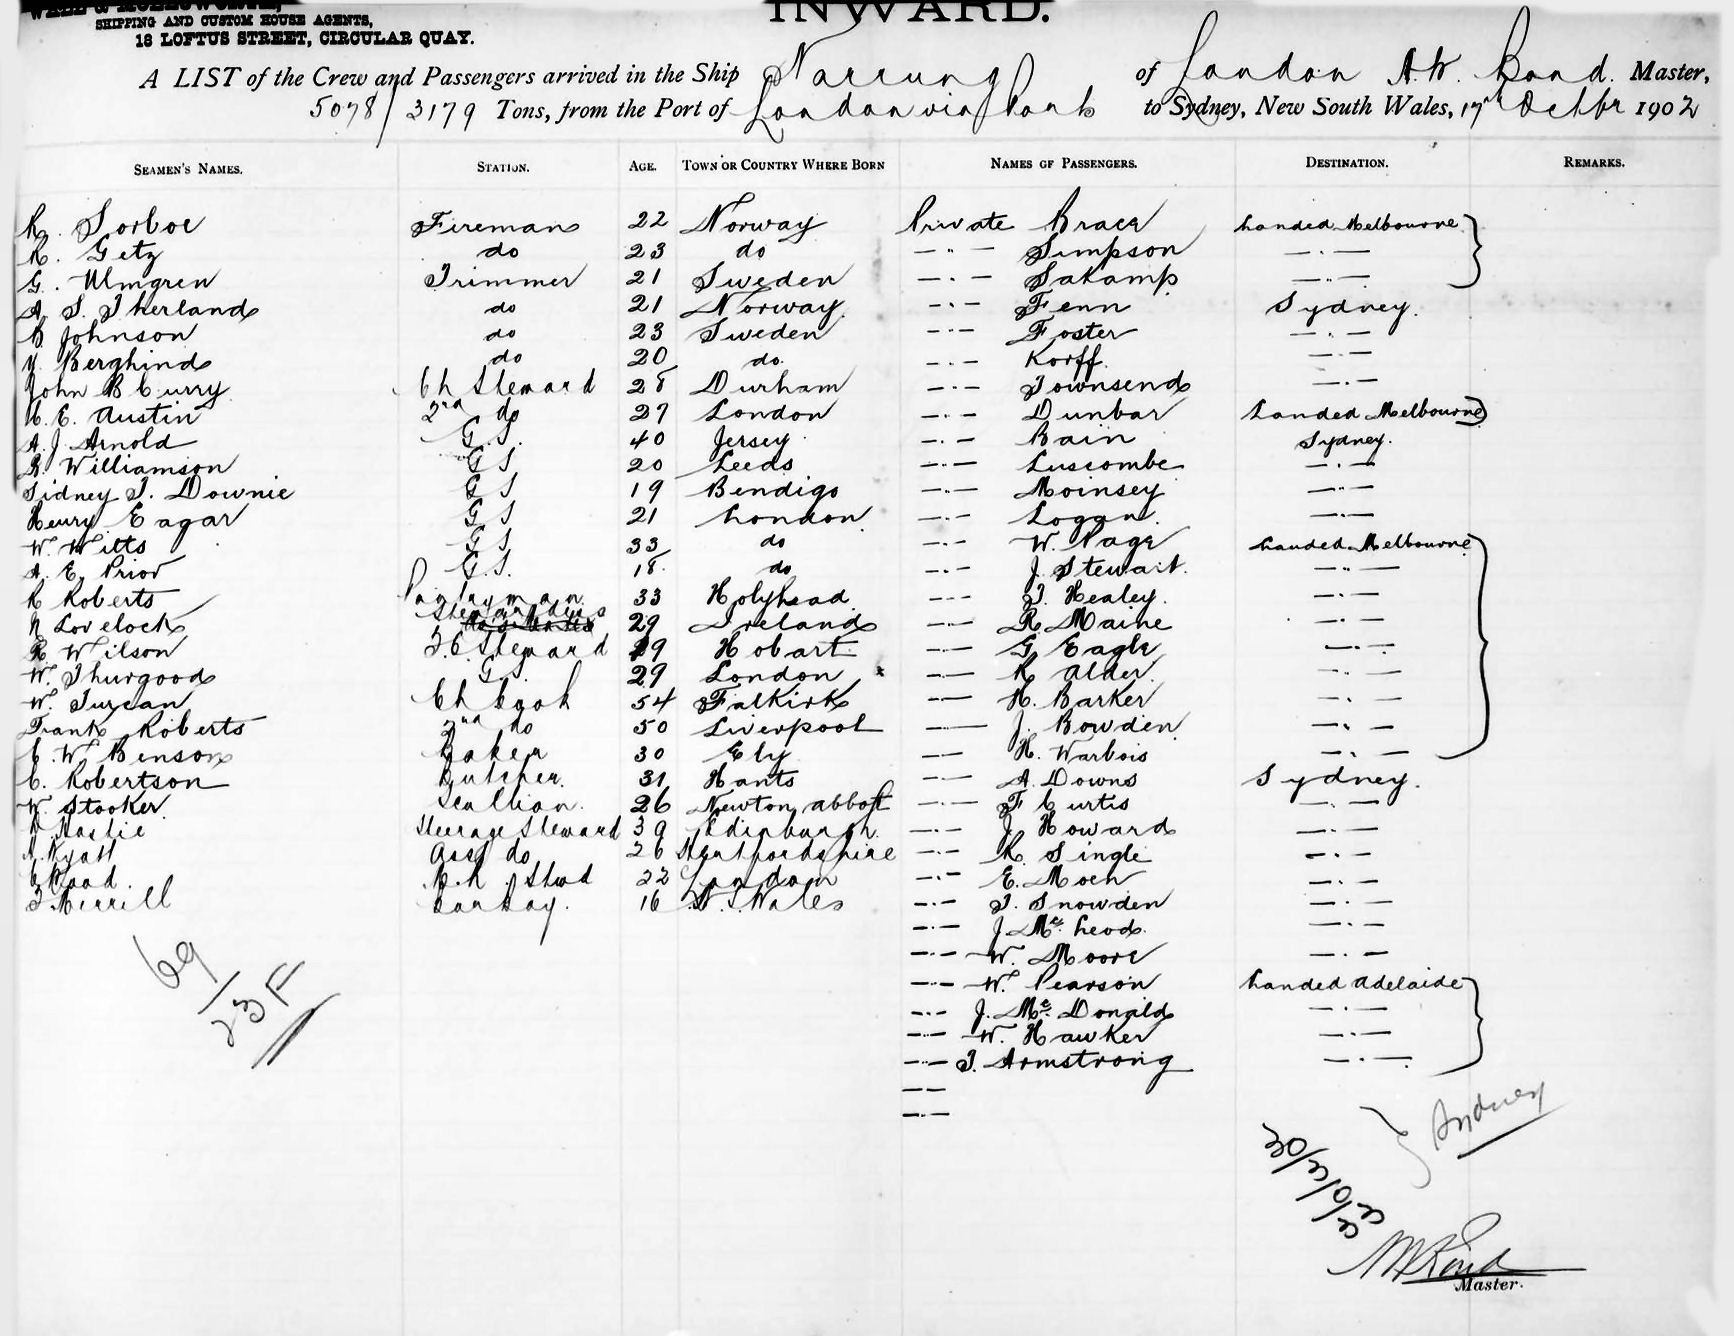 INWARD.
SHIPPING AND CUSTOM HOUSE AGENTS,
18 LOFTUS STREET, CIRCULAR QUAY.
A LIST of the Crew and Passengers arrived in the Ship Narrung of London A.W. Bond. Master,
5078/3179 Tons, from the Port of London via Ports to Sydney, New South Wales, 17th Octbr 1902
SEAMEN'S NAMES. STATION. AGE. TOWN OR COUNTRY WHERE BORN NAMES OF PASSENGERS. DESTINATION. REMARKS.
R. Sorboe Fireman 22 Norway Private Brace Landed Melbourne
R. Getz do 23 do —"— Simpson —"—
G. Ulmgren Trimmer 21 Sweden —"— Sakamp —"—
A. S. Therland do 21 Norway —"— Fenn Sydney.
B Johnson do 23 Sweden —"— Foster —"—
Berghind do 20 do —"— Korff —"—
John B Curry Ch Steward 28 Durham —"— Townsend —"—
C. E. Austin 2nd do 27 London —"— Dunbar Landed Melbourne
A. J. Arnold G.S. 40 Jersey —"— Bain Sydney.
R. Williamson G S 20 Leeds —"— Luscombe —"—
Sidney T. Downie G S 19 Bendigo —"— Moinsey —"—
Henry Eagar G S 21 London —"— Loggan —"—
W. Witts G S 33 do —"— W. Page Landed Melbourne
A. E. Prior G.S. 18 do —"— J. Stewart —"—
R Roberts Pantryman 33 Holyhead —"— T. Healey —"—
N Lovelock Stewardess 29 Ireland —"— R. Maine —"—
R Wilson Steward 29 Hobart —"— G. Eagle —"—
W. Thurgood G S 29 London —"— R Alder —"—
W. Turean Ch Cook 54 Falkirk —"— H. Barker —"—
Frank Roberts 2nd do 50 Liverpool —"— J. Bowden —"—
C. W. Benson Baker 30 Ely —"— H. Warbois —"—
C. Robertson Butcher 31 Hants —"— A. Downs Sydney.
W. Stooker Scullion. 26 Newton Abbott —"— F Curtis —"—
Hastie Steerage Steward 39 Edinburgh. —"— J. Howard —"—
Wyatt Asst do 26 Hertfordshire —"— R. Single —"—
Wood. Stwd 22 London —"— E. Moen —"—
T. Merrill 16 N.S. Wales —"— T. Snowden —"—
—"— J. McLeod —"—
—"— W. Moore —"—
—"— W. Pearson Landed Adelaide
—"— J. McDonald —"—
—"— W. Hawker —"—
—"— T. Armstrong —"—
—"—
—"—
Sydney
69/23 F
Master.